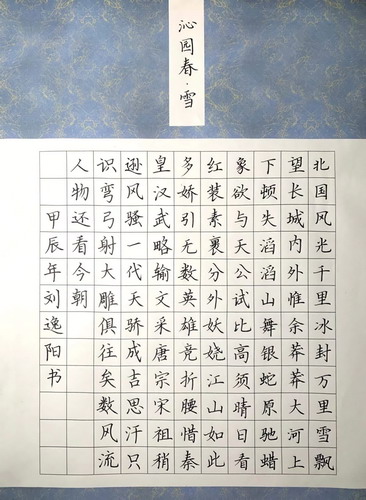 沁园春·雪
北国风光千里冰封万里雪飘
望长城内外惟余莽莽大河上
下顿失滔滔山舞银蛇原驰蜡
象欲与天公试比高须晴日看
红装素裹分外妖娆江山如此
多娇引无数英雄竞折腰惜秦
皇汉武略输文采唐宗宋祖稍
逊风骚一代天骄成吉思汗只
识弯弓射大雕俱往矣数风流
人物还看今朝
甲辰年刘逸阳书